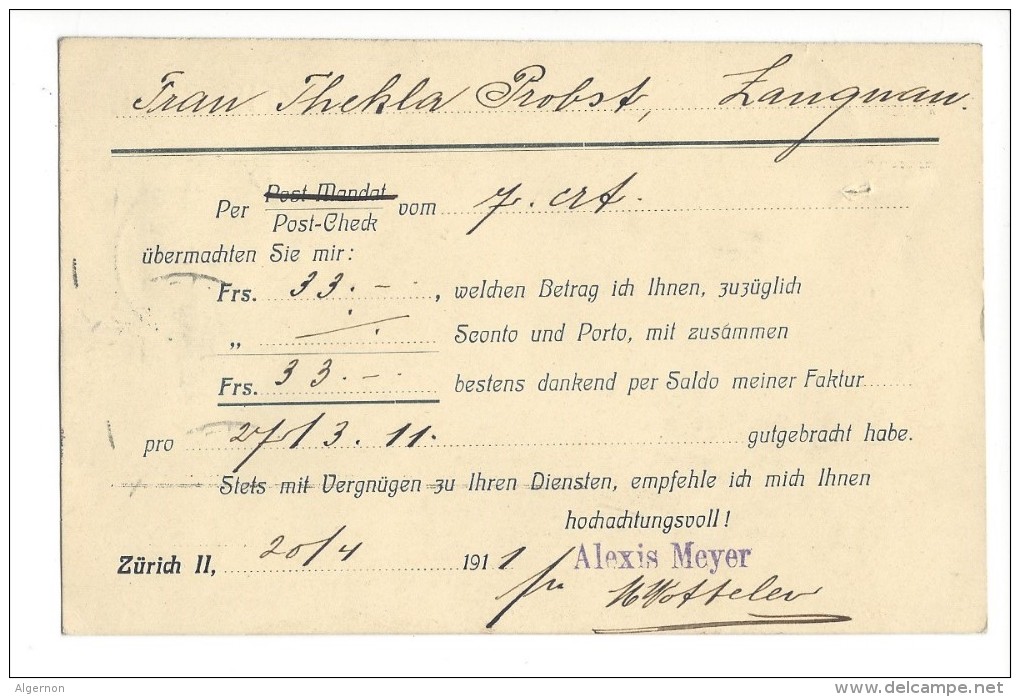 Frau Thekla Probst, Langnau.
Per Post-Mandat
Post-Check vom 7. crt.
übermachten Sie mir:
Frs. 33.-, welchen Betrag ich Ihnen, zuzüglich
„ Sconto und Porto, mit zusammen
Frs. 33.- bestens dankend per Saldo meiner Faktur
pro 27/3.11. gutgebracht habe.
Stets mit Vergnügen zu Ihren Diensten, empfehle ich mich Ihnen
hochachtungsvoll!
Zürich II, 20/4 1911 Alexis Meyer
Algernon
delcampe.net